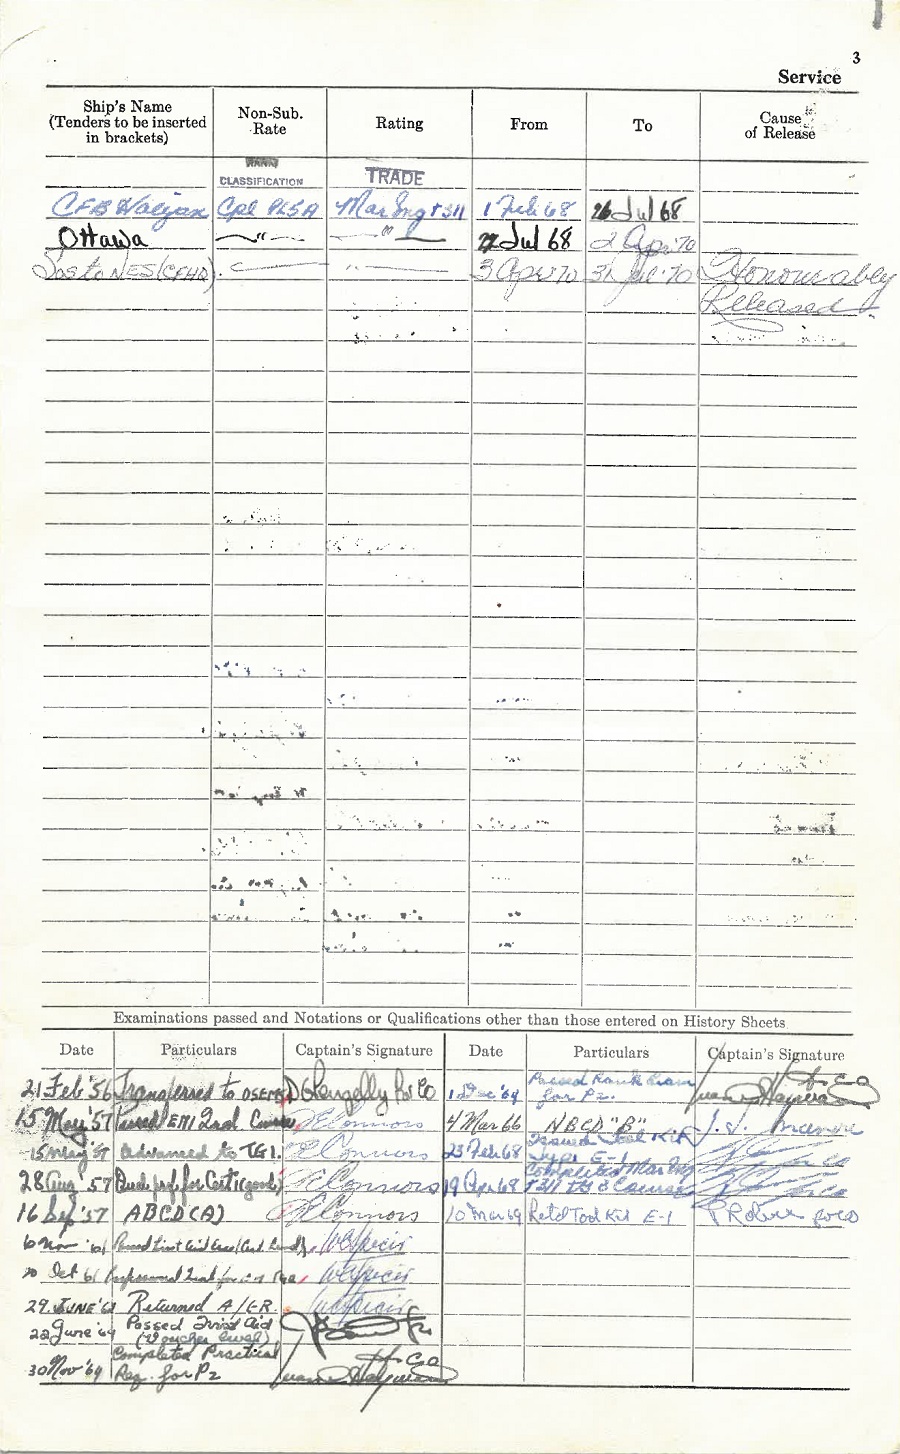 3
Service
Ship's Name (Tenders to be inserted in brackets) Non-Sub. Rate Rating From To Cause of Release
RANK
CLASSIFICATION TRADE
CFB Halifax Cpl PL5A Mar Eng T 311 1 Feb 68 26 Jul 68
Ottawa — " — — " — 27 Jul 68 2 Apr '70
(CFHQ) 3 Apr '70 31 Jul '70 Honourably
Released
Examinations passed and Notations or Qualifications other than those entered on History Sheets
Date Particulars Captain's Signature Date Particulars Captain's Signature
21 Feb '56 Transferred to 1 Dec '64 Passed Rank Exam for P2.
15 May '57 Passed EM1 2nd. O'Connors 4 Mar 66 NBCD "B"
15 May '57 Advanced to TG1. O'Connors 23 Feb 68 Issued Tool Kit Type E-1
28 Aug '57 for Cert 1 (good) O'Connors 19 Apr 68 Completed Mar Eng T311 TG 3 Course
16 Sep '57 ABCD (A) O'Connors 10 Mar 69 Retd Tool Kit E-1
6 Nov '61 Passed First Aid
20 Oct 61 Professional
29. JUNE '62 Returned A/ER.
22 June '64 Passed First Aid
(Voucher level)
30 Nov '64 Completed Practical
Req. for P2